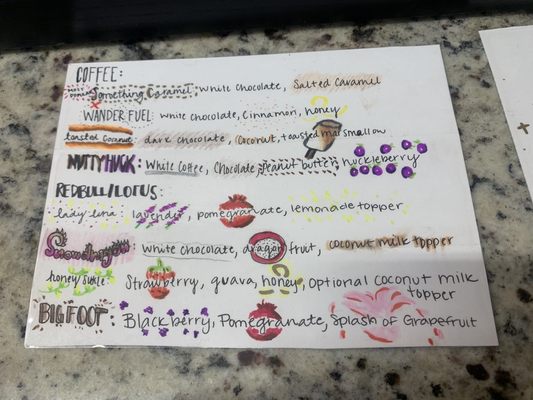 COFFEE:
Something Caramel: White chocolate, Salted Caramel
WANDER FUEL: white chocolate, Cinnamon, honey
toasted coconut: dark chocolate, Coconut, toasted marshmallow
NUTTY HUCK: White Coffee, Chocolate, Peanut butter, huckleberry
REDBULL/LOTUS:
lady luna: lavender, pomegranate, lemonade topper
White chocolate, dragon fruit, coconut milk topper
honey sukle: Strawberry, guava, honey, optional coconut milk
topper
BIGFOOT: Blackberry, Pomegranate, Splash of Grapefruit